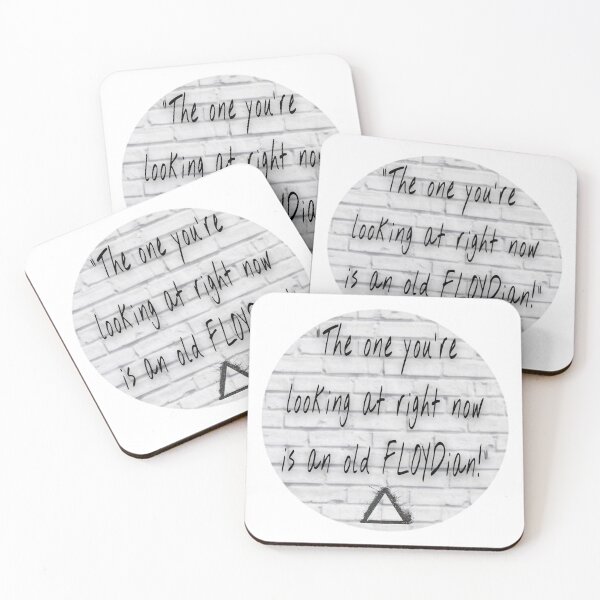 "The one you're
looking at right
"The one you're
looking at right now
is an old FLOYDian!"
"The one you're
looking at right now
is an old
"The one you're
looking at right now
is an old FLOYDian!"